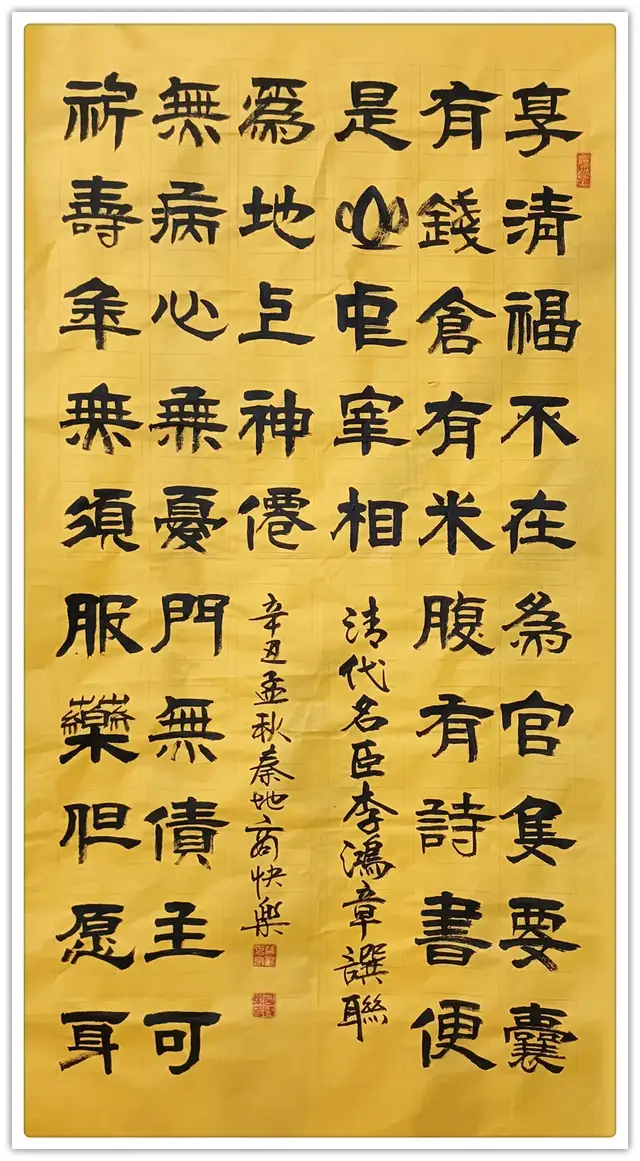 享清福不在為官隻要囊
有錢倉有米腹有詩書便
是山中宰相
清代名臣李鴻章譔聯
祈壽年無須服藥但愿身
無病心無憂門無債主可
爲地上神僊
辛丑孟秋秦地商快樂